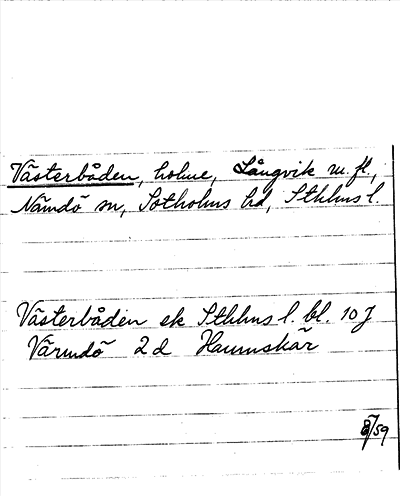 Västerbåden, holme, Långvik m. fl.,
Nämdö sn, Sotholms hd, Sthlms l.
Västerbåden ek Sthlms l. bl. 10 J
Värmdö 2 d Hamnskär
/59